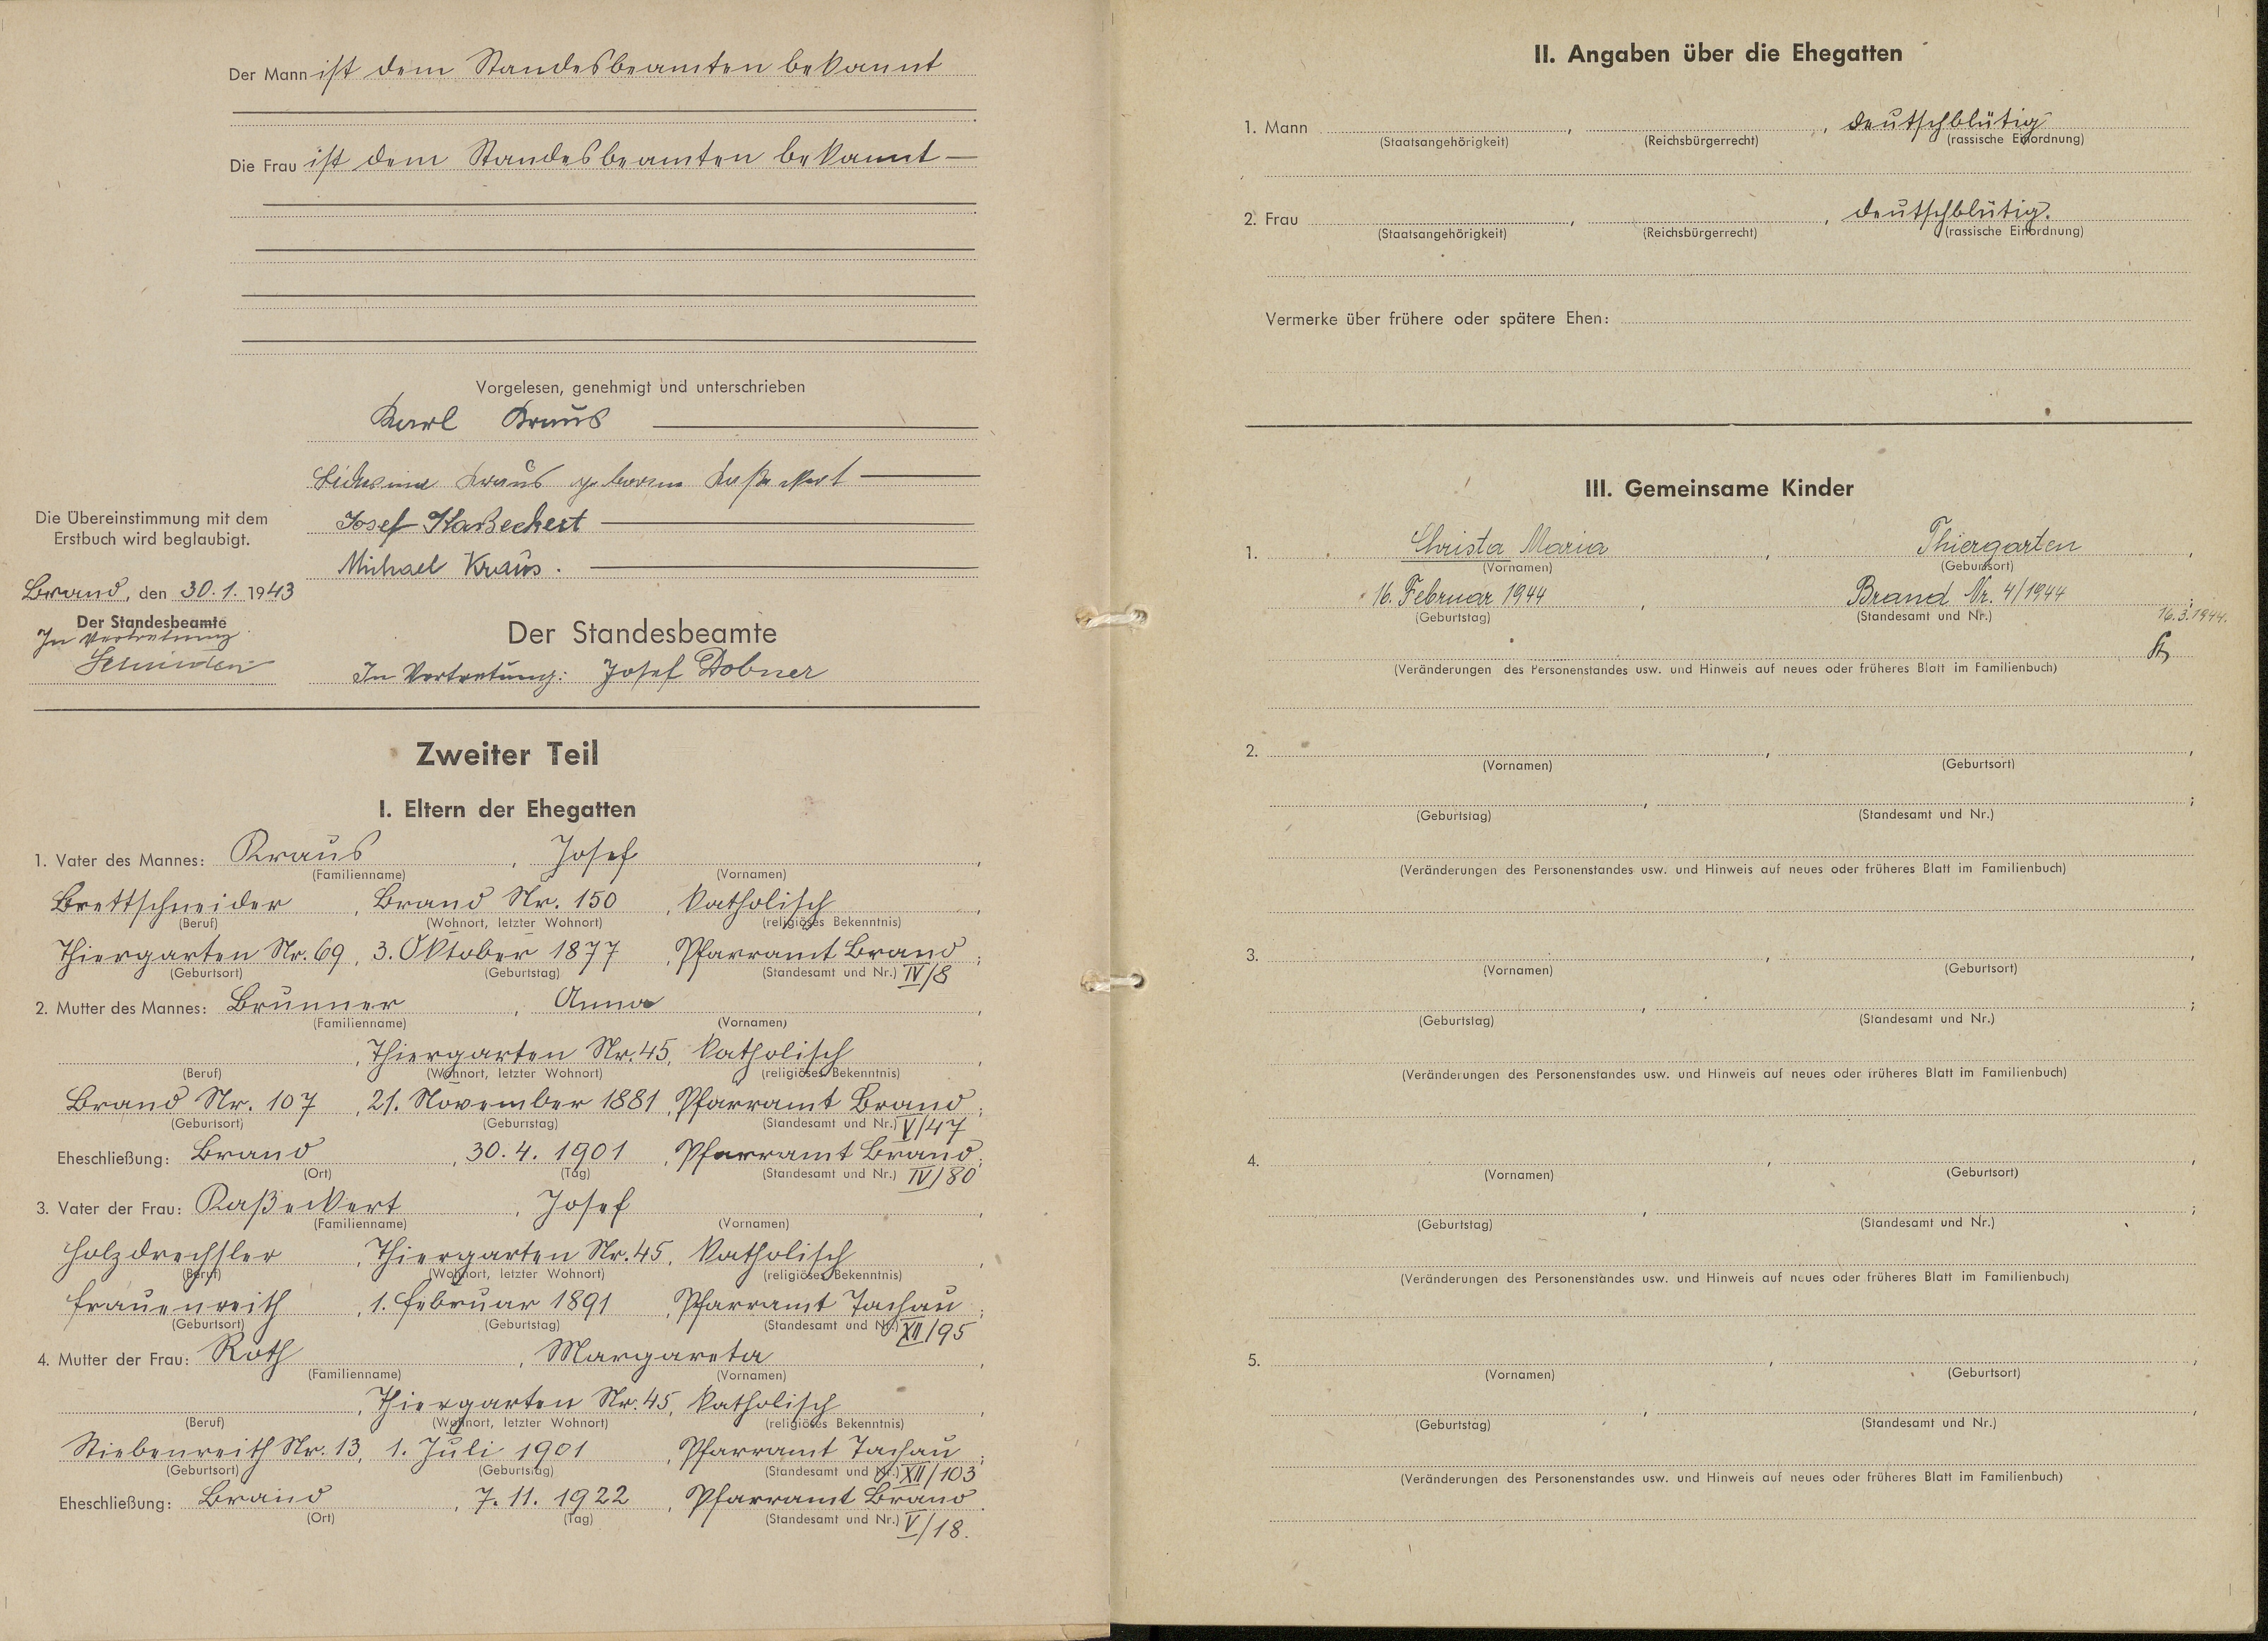 Der Mann ist dem Standesbeamten bekannt
Die Frau ist dem Standesbeamten bekannt —
Vorgelesen, genehmigt und unterschrieben
Karl Kraus
Kraus geborene Kaßeckert
Josef Kaßeckert
Michael Kraus.
Die Übereinstimmung mit dem
Erstbuch wird beglaubigt.
Brand, den 30. 1. 1943
Der Standesbeamte
In Vertretung
Der Standesbeamte
In Vertretung: Josef Dobner
Zweiter Teil
I. Eltern der Ehegatten
1. Vater des Mannes: Kraus, Josef,
(Familienname) (Vornamen)
Brettschneider, Brand Nr. 150, katholisch,
(Beruf) (Wohnort, letzter Wohnort) (religiöses Bekenntnis)
Thiergarten Nr. 69, 3. Oktober 1877, Pfarramt Brand;
(Geburtsort) (Geburtstag) (Standesamt und Nr.) IV/8
2. Mutter des Mannes: Brunner, Anna,
(Familienname) (Vornamen)
, Thiergarten Nr. 45, katholisch,
(Beruf) (Wohnort, letzter Wohnort) (religiöses Bekenntnis)
Brand Nr. 107, 21. November 1881, Pfarramt Brand;
(Geburtsort) (Geburtstag) (Standesamt und Nr.) V/47
Eheschließung: Brand, 30. 4. 1901, Pfarramt Brand;
(Ort) (Tag) (Standesamt und Nr.) IV/80
3. Vater der Frau: Kaßeckert, Josef,
(Familienname) (Vornamen)
Holzdrechsler, Thiergarten Nr. 45, katholisch,
(Beruf) (Wohnort, letzter Wohnort) (religiöses Bekenntnis)
Frauenreith, 1. Februar 1891, Pfarramt Tachau;
(Geburtsort) (Geburtstag) (Standesamt und Nr.) XII/95
4. Mutter der Frau: Roth, Margareta,
(Familienname) (Vornamen)
, Thiergarten Nr. 45, katholisch,
(Beruf) (Wohnort, letzter Wohnort) (religiöses Bekenntnis)
Stiebenreith Nr. 13, 1. Juli 1901, Pfarramt Tachau;
(Geburtsort) (Geburtstag) (Standesamt und Nr.) XII/103
Eheschließung: Brand, 7. 11. 1922, Pfarramt Brand.
(Ort) (Tag) (Standesamt und Nr.) V/18.
II. Angaben über die Ehegatten
1. Mann , , deutschblütig
(Staatsangehörigkeit) (Reichsbürgerrecht) (rassische Einordnung)
2. Frau , , deutschblütig.
(Staatsangehörigkeit) (Reichsbürgerrecht) (rassische Einordnung)
Vermerke über frühere oder spätere Ehen:
III. Gemeinsame Kinder
1. Christa Maria, Thiergarten,
(Vornamen) (Geburtsort)
16. Februar 1944, Brand Nr. 4/1944;
(Geburtstag) (Standesamt und Nr.) 16.3.1944.
(Veränderungen des Personenstandes usw. und Hinweis auf neues oder früheres Blatt im Familienbuch)
2. , ,
(Vornamen) (Geburtsort)
, ;
(Geburtstag) (Standesamt und Nr.)
(Veränderungen des Personenstandes usw. und Hinweis auf neues oder früheres Blatt im Familienbuch)
3. , ,
(Vornamen) (Geburtsort)
, ;
(Geburtstag) (Standesamt und Nr.)
(Veränderungen des Personenstandes usw. und Hinweis auf neues oder früheres Blatt im Familienbuch)
4. , ,
(Vornamen) (Geburtsort)
, ;
(Geburtstag) (Standesamt und Nr.)
(Veränderungen des Personenstandes usw. und Hinweis auf neues oder früheres Blatt im Familienbuch)
5. , ,
(Vornamen) (Geburtsort)
, ,
(Geburtstag) (Standesamt und Nr.)
(Veränderungen des Personenstandes usw. und Hinweis auf neues oder früheres Blatt im Familienbuch)